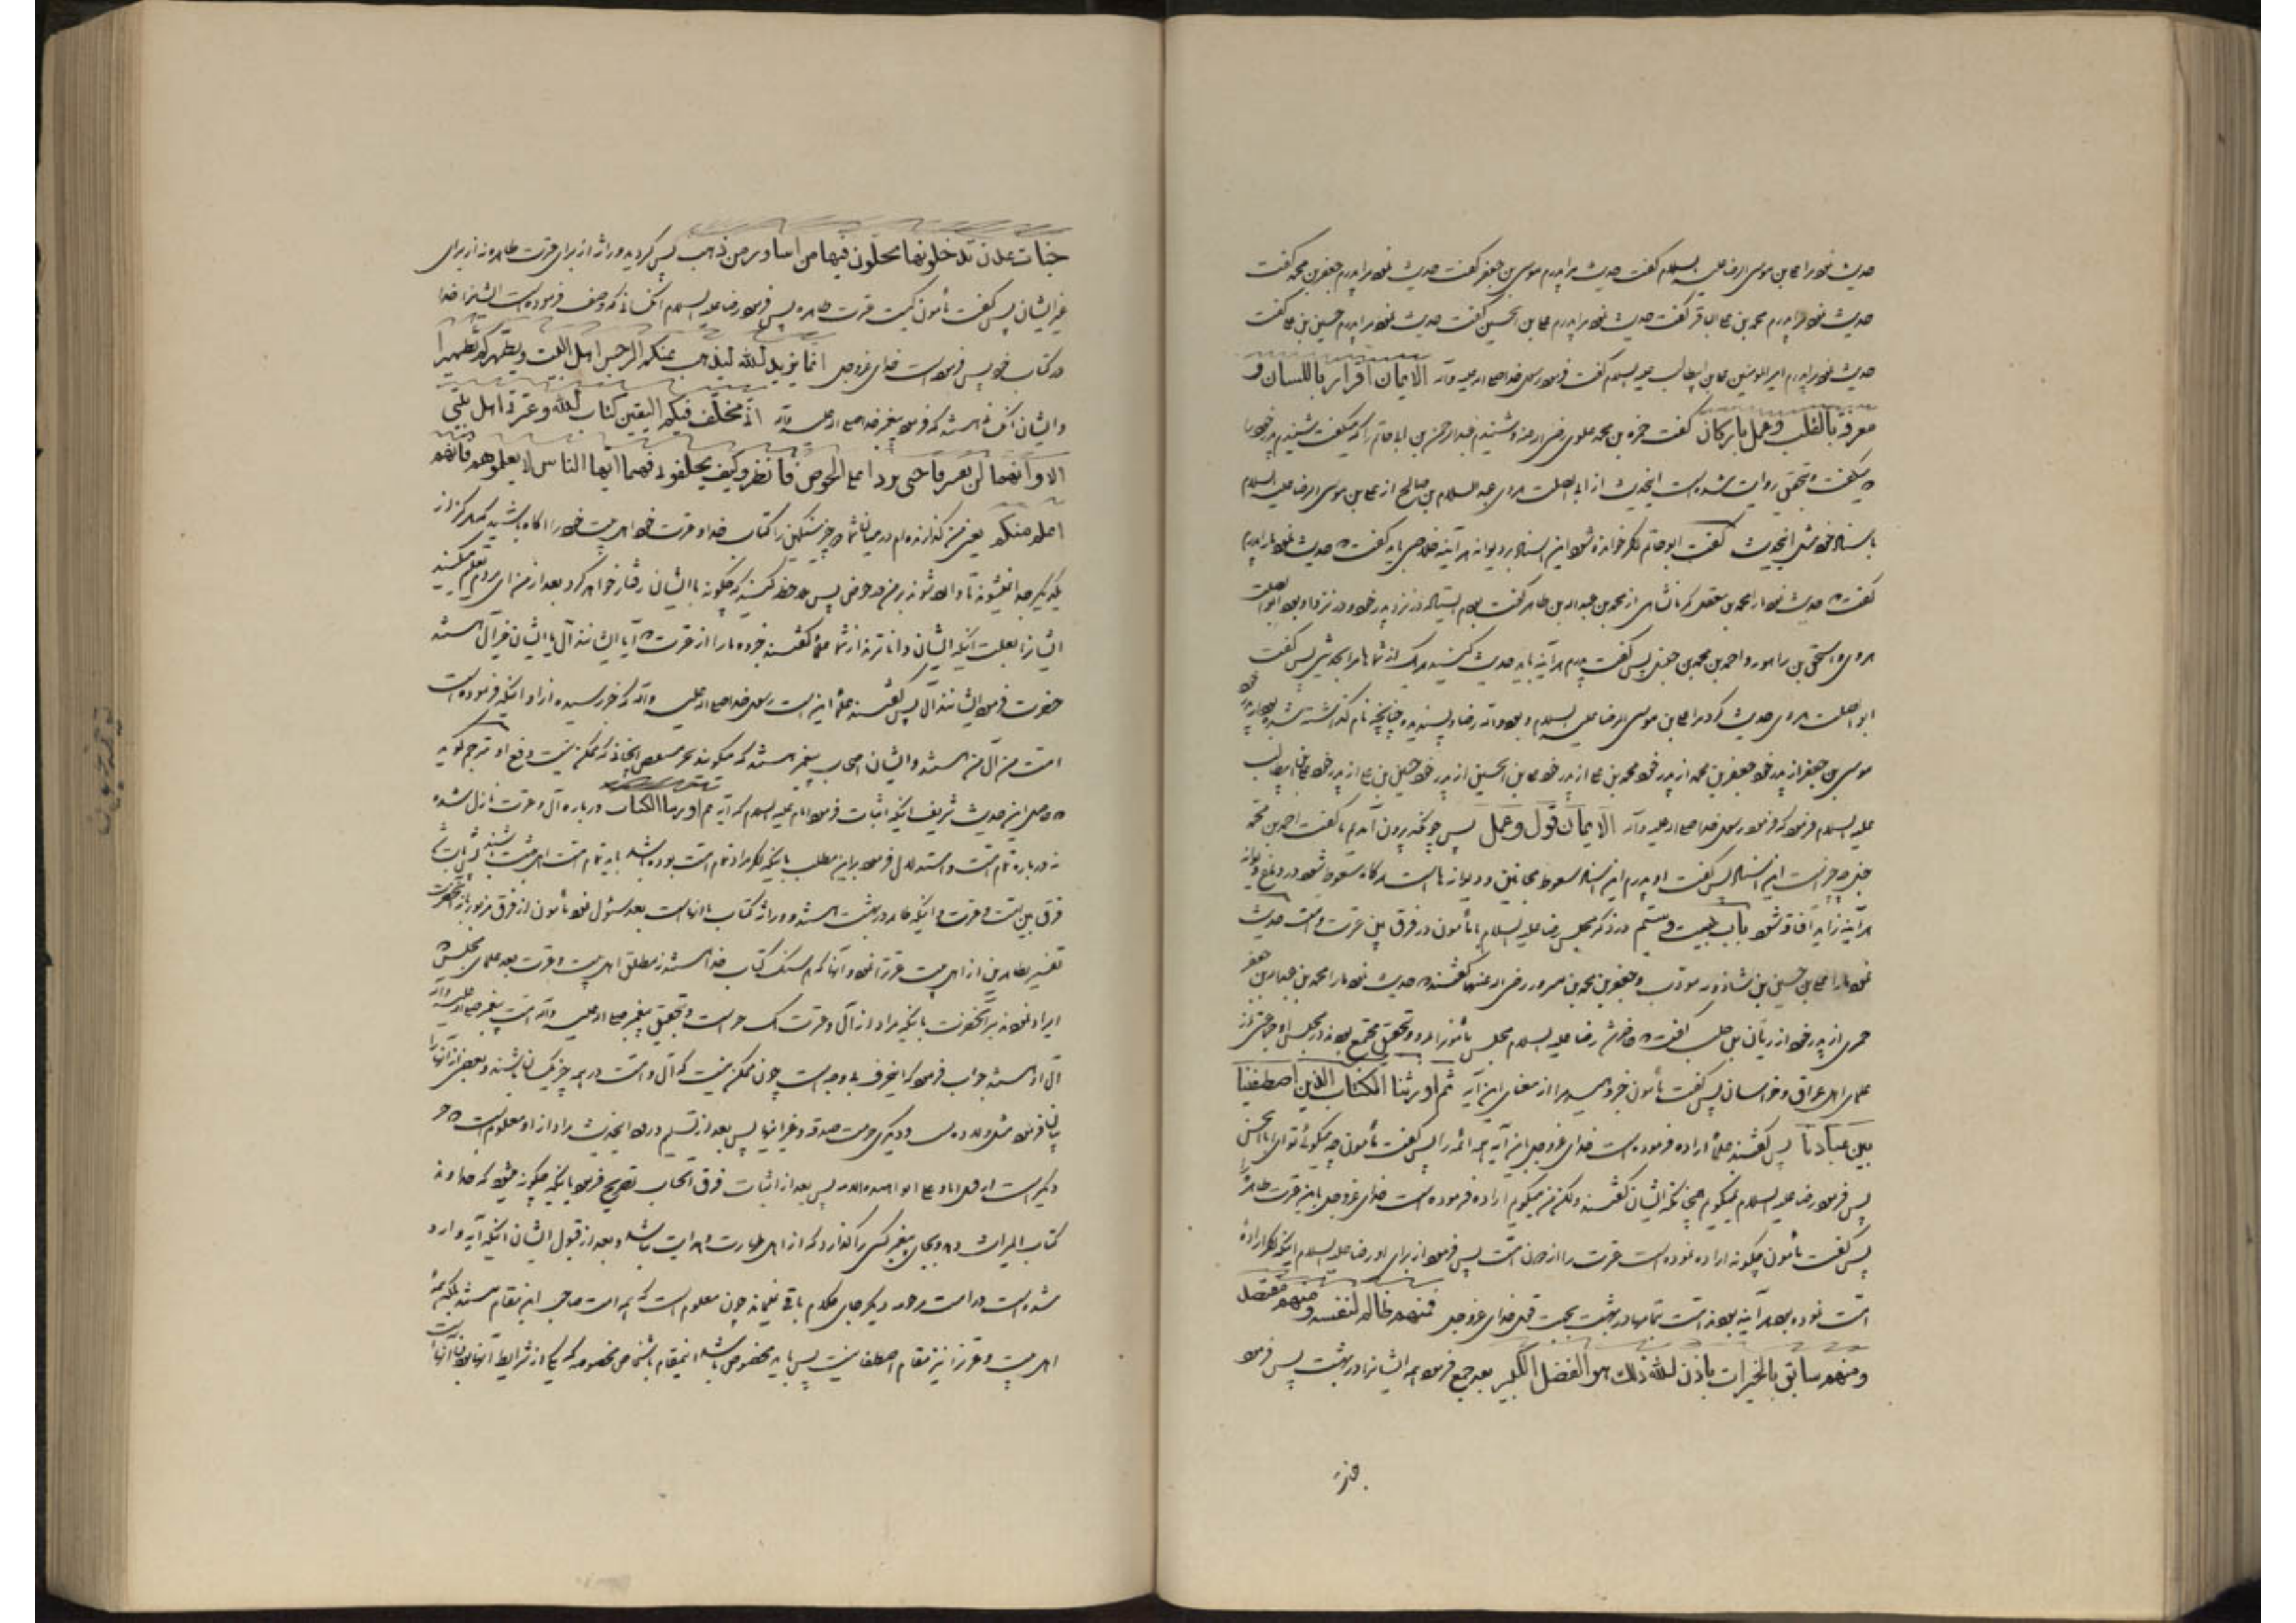 حدیث نمود مرا علی بن موسی الرضا علیه السلام گفت حدیث مرا پدرم موسی بن جعفر گفت حدیث نمود مرا پدرم جعفر بن محمد گفت
حدیث نمود مرا پدرم محمد بن علی الباقر گفت حدیث نمود مرا پدرم علی بن الحسین گفت حدیث نمود مرا پدرم حسین بن علی گفت
حدیث نمود مرا پدرم امیر المومنین علی بن ابیطالب علیه السلام گفت فرمود رسول خدا صلی الله علیه وآله الایمان اقرار باللسان و
معرفة بالقلب وعمل بارکان گفت حمزه بن محمد علوی رضی الله عنه وشنیدم عبدالرحمن بن ابی حاتم را که میگفت شنیدم پدر خود را
میگفت و بتحقیق روایت شده است اینحدیث از ابی الصلت هروی عبد السلام بن صالح از علی بن موسی الرضا علیه السلام
باسناد خود مثل اینحدیث گفت ابو حاتم اگر خوانده شود این اسناد بر دیوانه هر آینه خلاصی یابد گفت حدیث نمود ما را پدرم
گفت حدیث نمود ما را محمد بن معقل از محمد بن عبدالله بن طاهر گفت بودم ایستاده در نزد پدر خود و در نزد او بود ابو الصلت
هروی و اسحق بن راهویه و احمد بن محمد بن حنبل پس گفت پدرم هر آینه باید حدیث کنید هر یک از شماها مرا بحدیثی پس گفت
ابو الصلت هروی حدیث کرد مرا علی بن موسی الرضا علیه السلام و بود والله رضا و پسندیده چنانچه نام گذاشته شده بود از پدر خود
موسی بن جعفر از پدر خود جعفر بن محمد از پدر خود محمد بن علی از پدر خود علی بن الحسین از پدر خود حسین بن علی از پدر خود علی بن ابیطالب
علیه السلام فرمود که فرمود رسول خدا صلی الله علیه وآله الایمان قول وعمل پس چونکه بیرون آمدیم ما گفت احمد بن محمد
حنبل چه چیز است این اسناد پس گفت او پدرم این اسناد سعوط مجانین و دیوانه ها است هر گاه سعوط شود در دماغ دیوانه
هر آینه زاید آفاقه شود باب بیست و سیم در ذکر مجلس رضا علیه السلام با مأمون در فرق بین عترت و امت حدیث
نمود ما را علی بن حسین بن شاذویه مودب و جعفر بن محمد بن مسرور رضی الله عنهما گفتند حدیث نمود ما را محمد بن عبدالله بن جعفر
حمیری از پدر خود از ریان بن صلت گفت حاضر شد رضا علیه السلام مجلس مأمون را در مرو و بتحقیق مجتمع بودند در مجلس او جماعتی از
علماء اهل عراق و خراسان پس گفت مأمون خبر دهید مرا از معنای این آیه ثم اورثنا الکتاب الذین اصطفینا
من عبادنا پس گفتند علما اراده فرموده است خدای عزوجل از این آیه همه امة را پس گفت مأمون چه میگوئی تو ای ابا الحسن
پس فرمود رضا علیه السلام نمیگویم همچنانکه ایشان گفتند ولکن من میگویم اراده فرموده است خدای عزوجل باین عترت طاهره را
پس گفت مأمون چگونه اراده نموده است عترت را از دون امت پس فرمود از برای او رضا علیه السلام اینکه اگر اراده
امت نموده بود هر آینه بودند امت تمامها در بهشت بجهت قول خدای عزوجل فمنهم ظالم لنفسه ومنهم مقتصد
ومنهم سابق بالخیرات باذن الله ذلک هو الفضل الکبیر بعد جمع فرمود همه ایشانرا در بهشت پس فرمود
جنات عدن تدخلونها یحلون فیها من اساور من ذهب پس گردید وراثت از برای عترت طاهره نه از برای
غیر ایشان پس گفت مأمون کیست عترت طاهره پس فرمود رضا علیه السلام آنکسانی که وصف فرموده است ایشانرا خدا
در کتاب خود پس فرموده است خدای عزوجل انما یرید الله لیذهب عنکم الرجس اهل البیت ویطهرکم تطهیرا
و ایشان آنکسانی هستند که فرمود پیغمبر خدا صلی الله علیه وآله انی مخلف فیکم الثقلین کتاب الله وعترتی اهل بیتی
الا وانهما لن یفترقا حتی یردا علی الحوض فانظروا کیف تخلفونی فیهما ایها الناس لا تعلموهم فانهم
اعلم منکم یعنی من گذارنده ام در میان شما دو چیز سنگین را کتاب خدا و عترت خود اهل بیت خود را آگاه باشید که هرگز از
یکدیگر جدا نمیشوند تا وارد شوند بر من در حوض پس ملاحظه کنید که چگونه با ایشان رفتار خواهید کرد بعد از من ای مردم تعلیم مکنید
ایشانرا بعلت آنکه ایشان داناترند از شما علما گفتند خبر ده ما را از عترت آیا ایشانند آل یا ایشان غیر آل هستند
حضرت فرمود ایشانند آل پس گفتند علما این است رسول خدا صلی الله علیه وآله که خبر رسیده از او اینکه فرموده است
امت من آل من هستند و ایشان اصحاب پیغمبر هستند که میگویند که ممکن نیست دفع او مترجم گوید
حاصل این حدیث شریف اینکه اثبات فرمود امام علیه السلام که آیه ثم اورثنا الکتاب درباره آل و عترت نازل شده
نه درباره تمام امت و استدلال فرمود بر این مطلب باینکه اگر مراد تمام امت بوده باشد باید تمام امت اهل بهشت باشند
فرق بین امت و عترت و اینکه طاهر در بهشت هستند و وراثت کتاب با آنها است بعد سئول نمود مأمون از فرق مزبور باز آنحضرت
تفسیر طاهرین از اهل بیت عترت نمود و آنها که هم سنگ کتاب خدا هستند نه مطلق اهل بیت و عترت بعد علمای مجلس
ایراد نمودند بر آنحضرت باینکه مراد از آل و عترت یک حرف است و بتحقیق پیغمبر صلی الله علیه وآله امت پیغمبر صلی الله علیه وآله
آل او هستند جواب فرمود که اینحرف بی وجه است چون ممکن نیست که آل و امت در همه چیز یکسان باشند و بعضی از آنها را
بیان فرمود و دیگری حرمت صدقه و غیر اینها پس بعد از تسلیم ورود اینحدیث مراد از او معلوم است
دیگر است پس بعد از اثبات فرق اصحاب تصریح فرمود باینکه چگونه میشود که خداوند
کتاب المیراث دهد و بجای پیغمبر کسی را گذارد که از اهل طهارت و هدایت نباشد و بعد از قبول ایشان اینکه آیه وارد
شده است در امت مرحومه دیگر جای کلام باقی نمیماند چون معلوم است که همه امت صاحب این مقام نیستند بلکه همه
اهل بیت و عترت را نیز مقام اصطفا نیست پس باید مخصوص باشد اینمقام باشخاص مخصوصه که یکی از شرایط آنها بودن آنها است
جنات